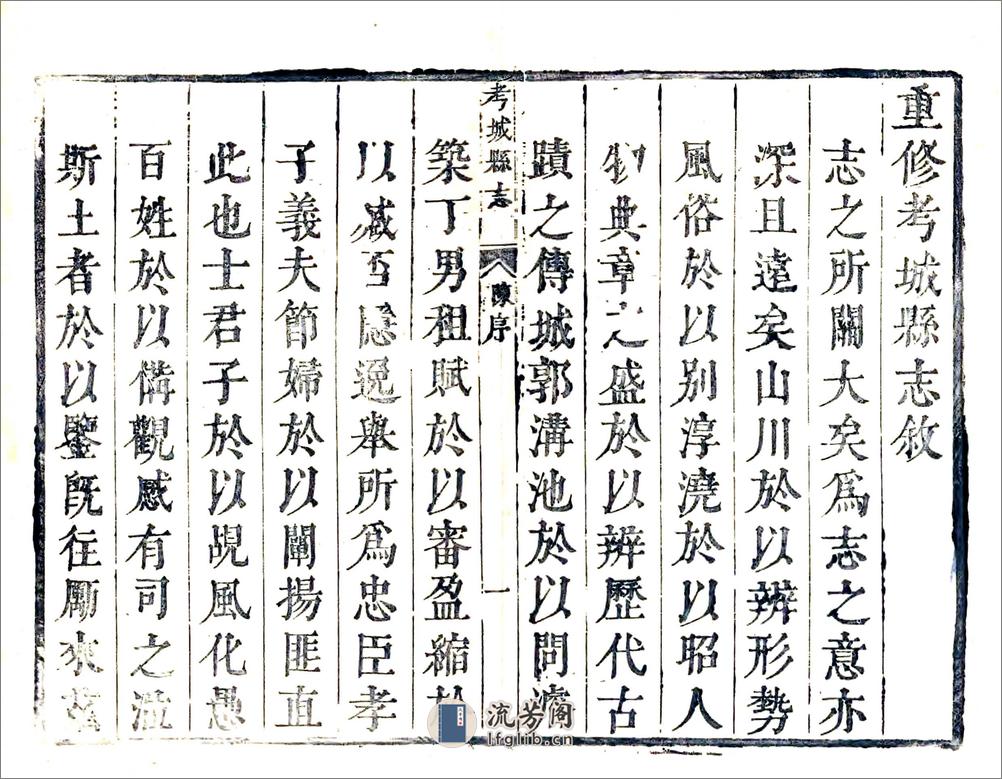 重修考城縣志敘
志之所關大矣爲志之意亦
深且遠矣山川於以辨形勢
風俗於以別淳澆於以昭人
物典章之盛於以辨歷代古
蹟之傳城郭溝池於以問濬
考城縣志 陳序 一
築丁男租賦於以審盈縮於
以臧否隱逸舉所爲忠臣孝
子義夫節婦於以闡揚匪直
此也士君子於以覘風化愚
百姓於以備觀感有司之蒞
斯土者於以鑒旣往勵來茲
流芳阁
lfglib.cn